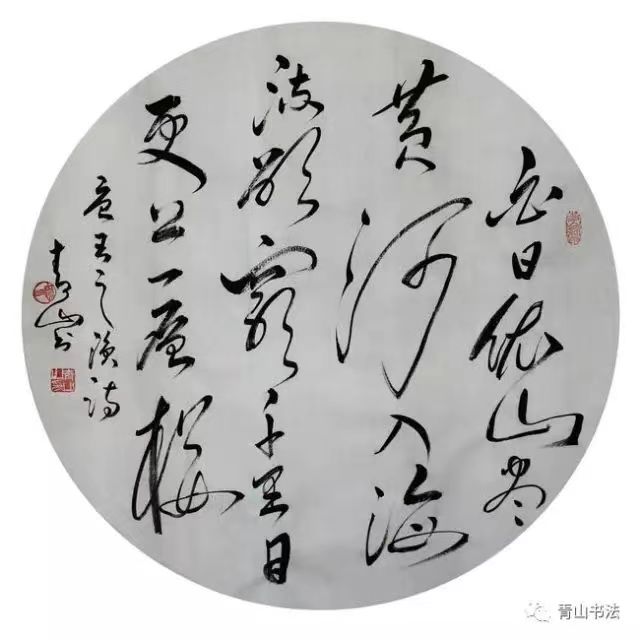 白日依山尽
黄河入海
流欲窮千里目
更上一層樓
王之渙詩
青山书
青山书法